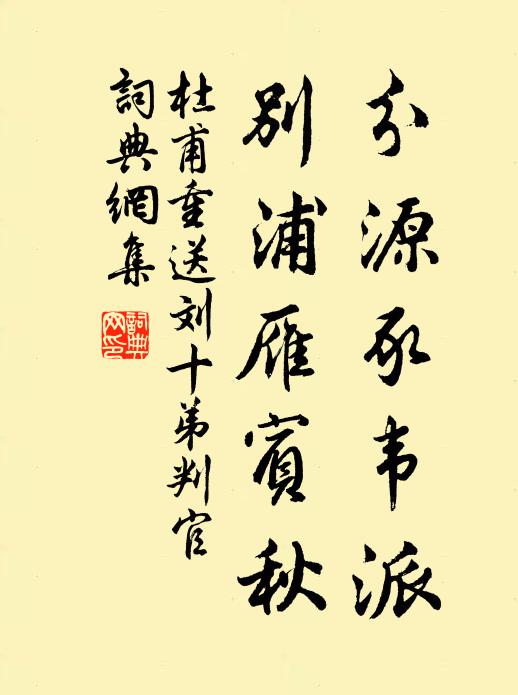 分源豕韦派
别浦雁賓秋
杜甫重送刘十弟判官
詞典網集
詞典网印